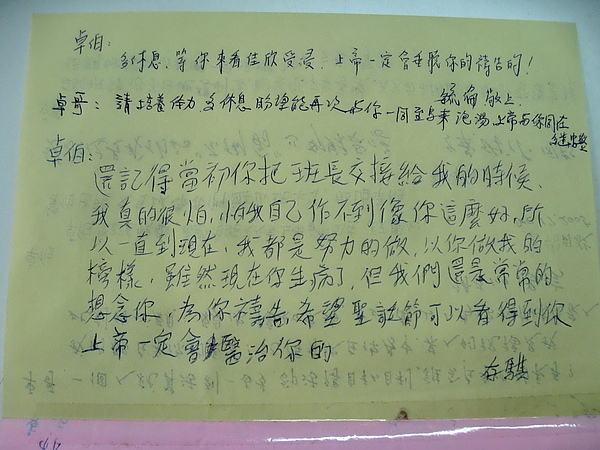 卓伯:
多休息,等你來看佳欣受浸,上帝一定會垂聽你的禱告的!
敬上.
卓哥: 請培養体力 多休息 盼望能再次与你一同至 來泡湯,上帝与你同在
卓伯:
還記得當初你把班長交接給我的時候,
我真的很怕,怕我自己作不到像你這麼好,所
以一直到現在,我都是努力的做,以你做我的
榜樣,雖然現在你生病了,但我們還是常常的
想念你,為你禱告,希望聖誕節可以看得到你
上帝一定會醫治你的